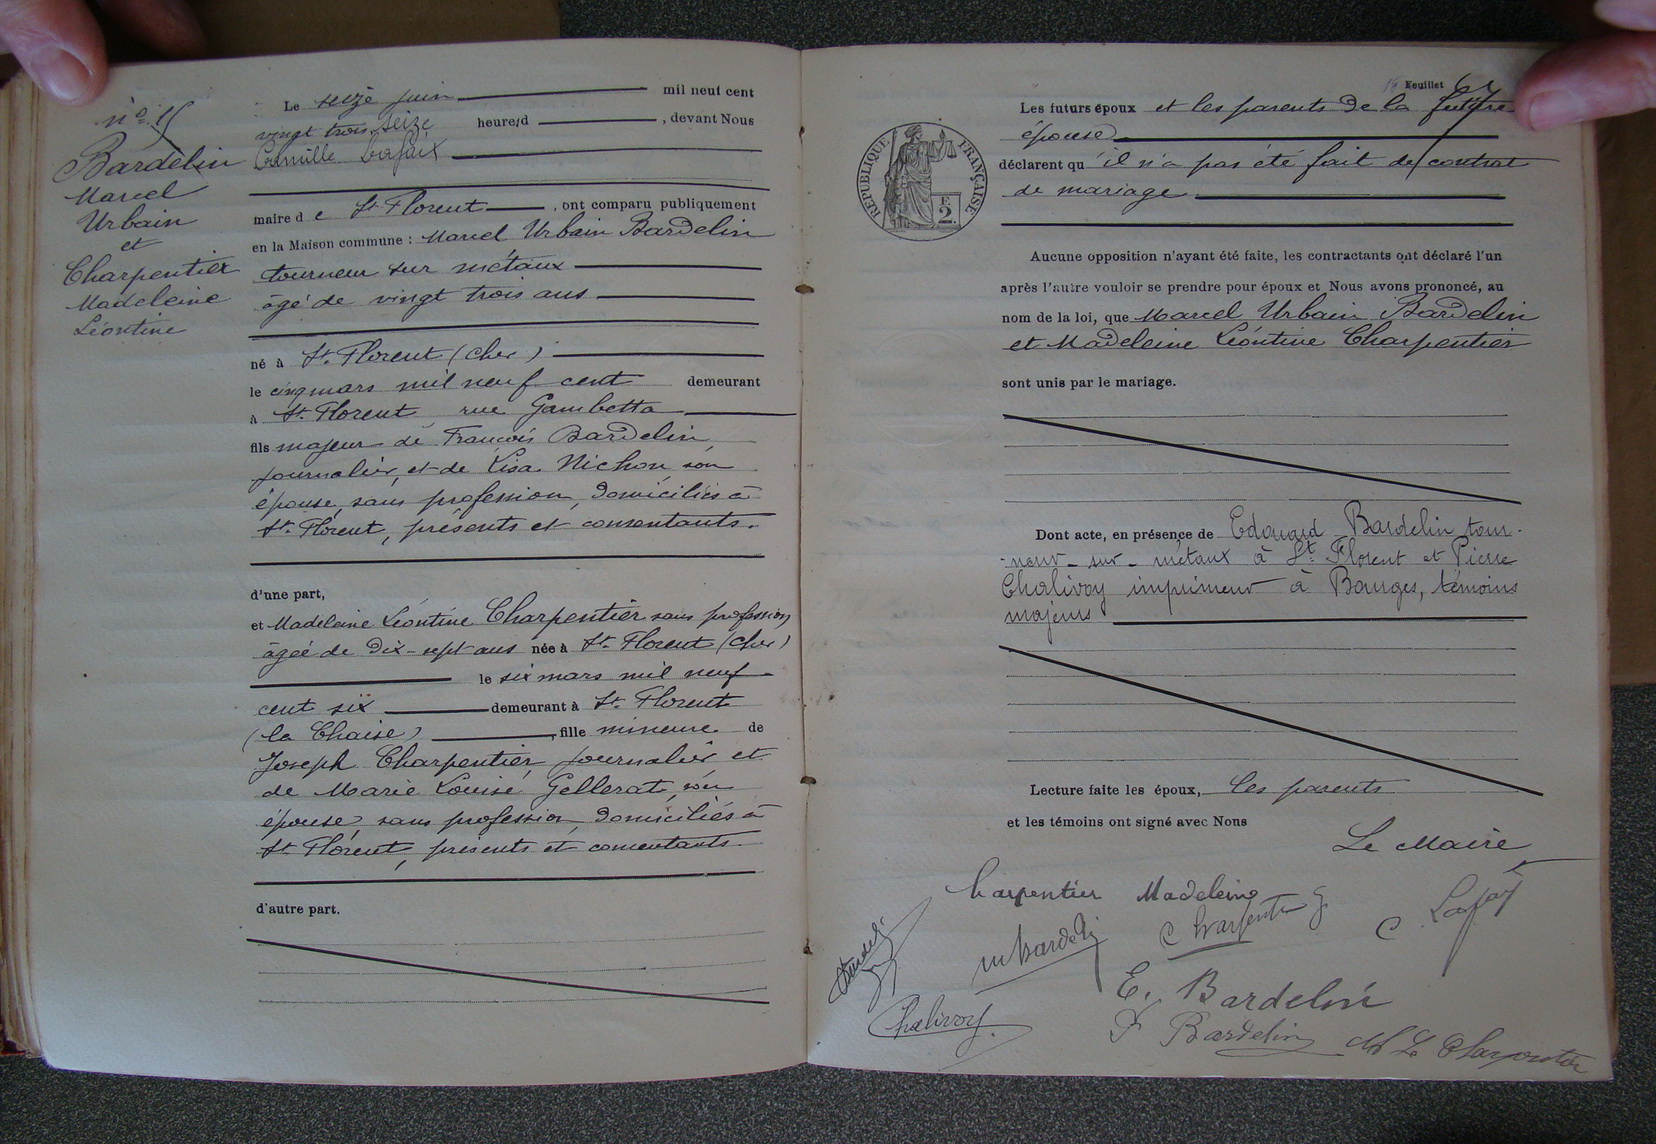 n° 15
Bardelin
Marcel
Urbain
et
Charpentier
Madeleine
Léontine
Le seize juin mil neuf cent
vingt trois, seize heure/d , devant Nous
Camille Lafaix
maire d e St Florent , ont comparu publiquement
en la Maison commune : Marcel Urbain Bardelin
tourneur sur métaux
âgé de vingt trois ans
né à St Florent (Cher)
le cinq mars mil neuf cent demeurant
à St Florent rue Gambetta
fils majeur de François Bardelin,
journalier, et de Lisa Nichon son
épouse, sans profession, domiciliés à
St Florent, présents et consentants.
d'une part,
et Madeleine Léontine Charpentier sans profession
âgée de dix-sept ans née à St Florent (Cher)
le six mars mil neuf
cent six demeurant à St Florent
(la Chaise) , fille mineure de
Joseph Charpentier, journalier et
de Marie Louise Gellerat, son
épouse, sans profession, domiciliés à
St Florent, présents et consentants.
d'autre part.
Feuillet
RÉPUBLIQUE FRANÇAISE
F.
2.
Les futurs époux et les parents de la future
épouse
déclarent qu'il n'a pas été fait de contrat
de mariage
Aucune opposition n'ayant été faite, les contractants ont déclaré l'un
après l'autre vouloir se prendre pour époux et Nous avons prononcé, au
nom de la loi, que Marcel Urbain Bardelin
et Madeleine Léontine Charpentier
sont unis par le mariage.
Dont acte, en présence de Edouard Bardelin tour-
-neur-sur-métaux à St Florent et Pierre
Chalivoy imprimeur à Bourges, témoins
majeurs
Lecture faite les époux, les parents
et les témoins ont signé avec Nous
Le Maire
Charpentier Madeleine
C. Lafaix
m bardelin
Charpentier J
E. Bardelin
Chalivoy
F Bardelin
Charpentier